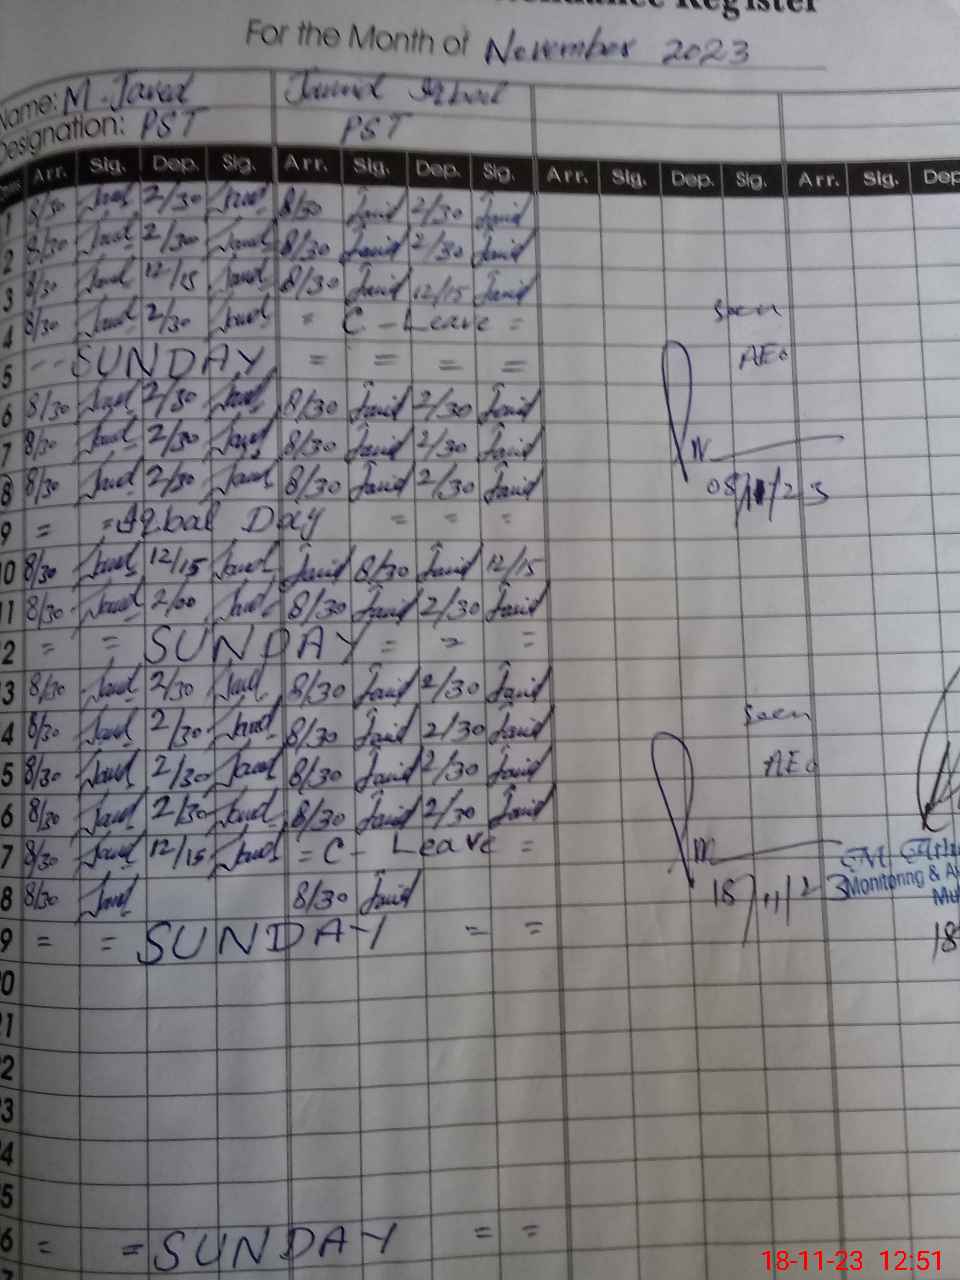 Attendance Register
For the Month of November 2023
Name: M. Javed
Designation: PST PST
Arr. Sig. Dep. Sig. Arr. Sig. Dep. Sig. Arr. Sig. Dep. Sig. Arr. Sig. Dep
1 8/30 Javed 2/30 Javed 8/30 Javid 2/30 Javid
2 8/30 Javed 2/30 Javed 8/30 Javid 2/30 Javid
3 8/30 Javed 12/15 Javed 8/30 Javid 12/15 Javid
4 8/30 Javed 2/30 Javed = C - Leave =
Seen
5 -- SUNDAY = = = =
AEO
6 8/30 Javed 2/30 Javed 8/30 Javid 2/30 Javid
7 8/30 Javed 2/30 Javed 8/30 Javid 2/30 Javid
8 8/30 Javed 2/30 Javed 8/30 Javid 2/30 Javid
08/11/23
9 = = Iqbal Day = = =
10 8/30 Javed 12/15 Javed Javid 8/30 Javid 12/15
11 8/30 Javed 2/00 Javed 8/30 Javid 2/30 Javid
2 = = SUNDAY = = =
3 8/30 Javed 2/30 Javed 8/30 Javid 2/30 Javid
4 8/30 Javed 2/30 Javed 8/30 Javid 2/30 Javid
Seen
5 8/30 Javed 2/30 Javed 8/30 Javid 2/30 Javid
AEO
6 8/30 Javed 2/30 Javed 8/30 Javid 2/30 Javid
7 8/30 Javed 12/15 Javed = C - Leave =
8 8/30 Javed 8/30 Javid
18/11/23
Monitoring &
Mu
9 = = SUNDAY = =
18
20
21
22
23
24
25
6 = = SUNDAY = =
18-11-23 12:51